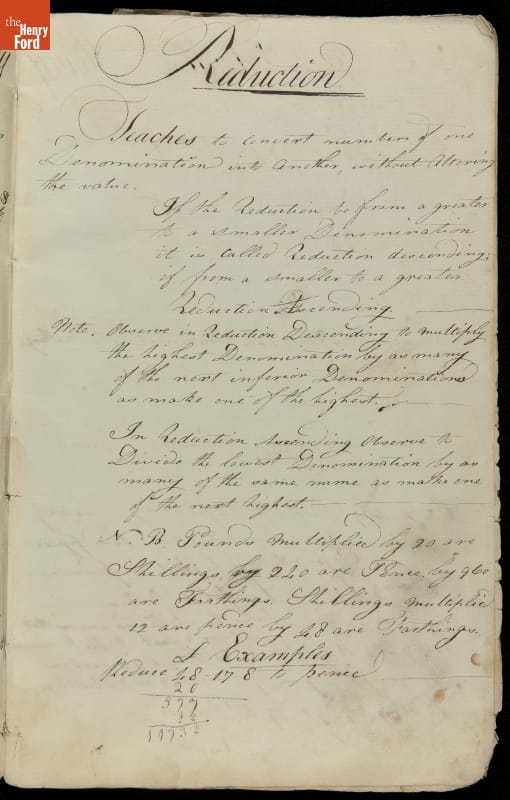 the
Henry
Ford
Reduction
Teaches to convert numbers of one
Denomination into Another, without Altering
the value.
If the Reduction be from a greater
to a smaller Denomination
it is called Reduction descending;
if from a smaller to a greater
Reduction Ascending
Note. Observe in Reduction Descending to multiply
the highest Denomination by as many
of the next inferior Denominations
as make one of the highest.
In Reduction Ascending Observe to
Divide the lowest Denomination by as
many of the same name as make one
of the next highest.
N. B. Pounds multiplied by 20 are
Shillings, by 240 are Pence, by 960
are Farthings. Shillings multiplie
12 are pence by 48 are Farthings.
£ Examples
Reduce 48-17-8 to pence
20
977
12
11732